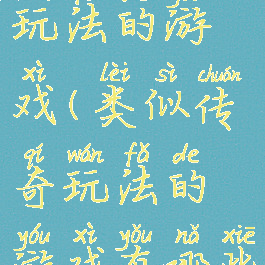 玩法的游
xì lèi sì chuán
戏(类似传
qí wán fǎ de
奇玩法的
yóu xì yǒu nǎ xiē
游戏有哪些